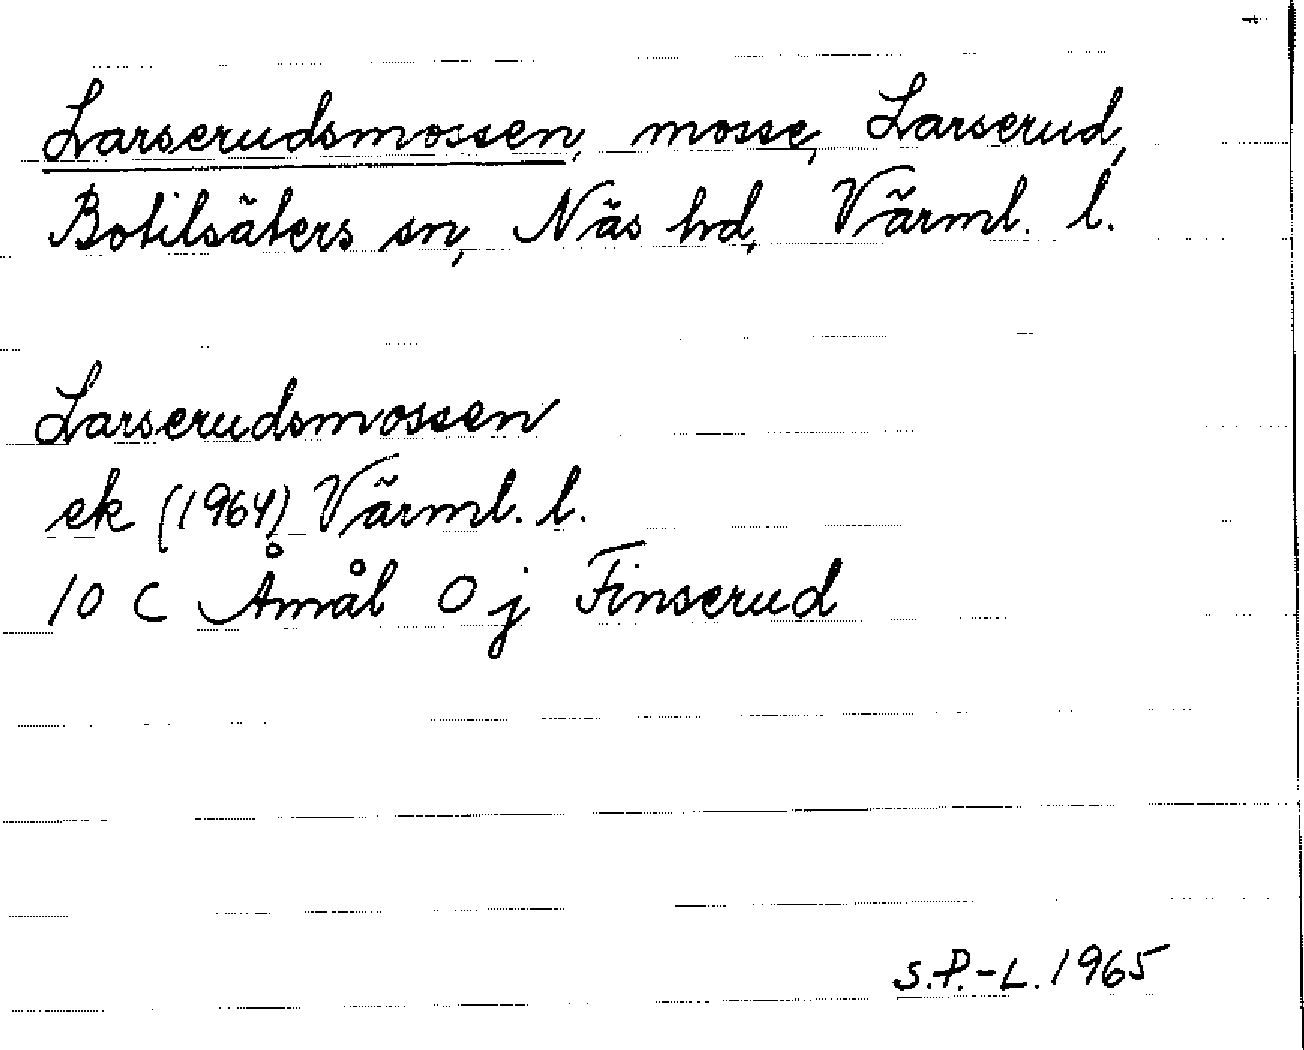 Larserudsmossen, mosse, Larserud,
Botilsäters sn, Näs hd, Värml. l.
Larserudsmossen
ek (1964) Värml. l.
10 C Åmål 0 j Finserud
S.P.-L. 1965